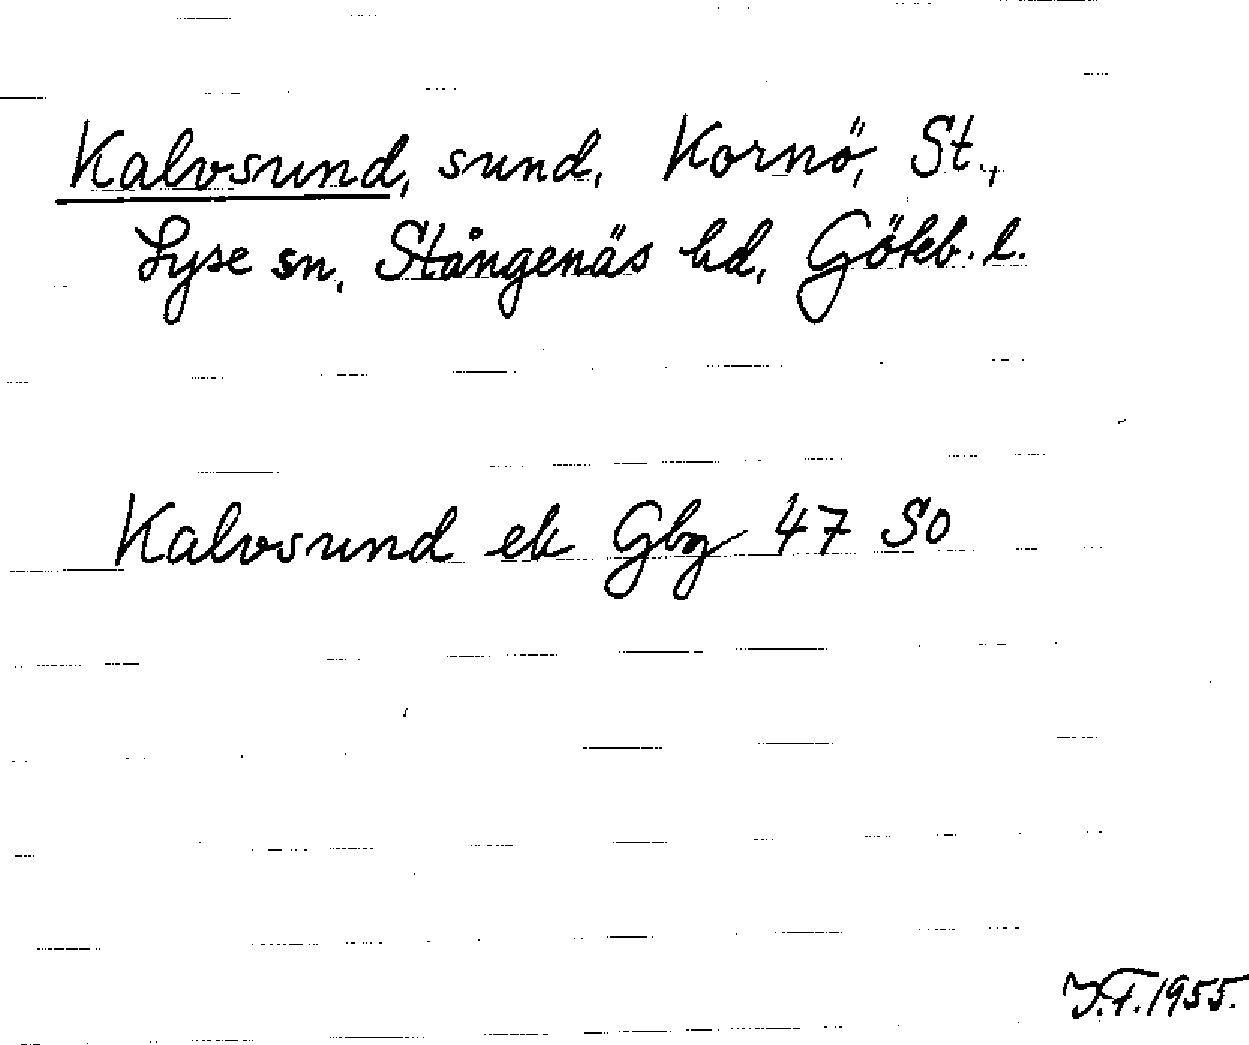 Kalvsund, sund, Kornö, St.,
Lyse sn, Stångenäs hd, Göteb. l.
Kalvsund ek Gbg 47 SO
J.F. 1955.